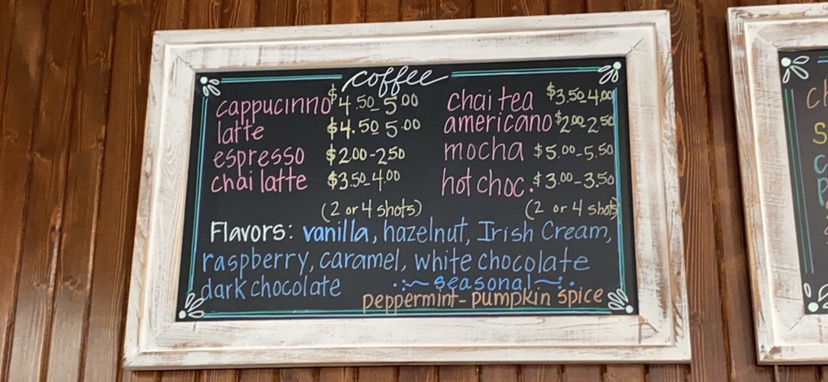 coffee
cappucinno $4.50-5.00
latte $4.50 5.00
espresso $2.00-2.50
chai latte $3.50-4.00
(2 or 4 shots)
chai tea $3.50 4.00
americano $2.00 2.50
mocha $5.00-5.50
hot choc. $3.00-3.50
(2 or 4 shots)
Flavors: vanilla, hazelnut, Irish Cream,
raspberry, caramel, white chocolate
dark chocolate
~seasonal~
peppermint-pumpkin spice